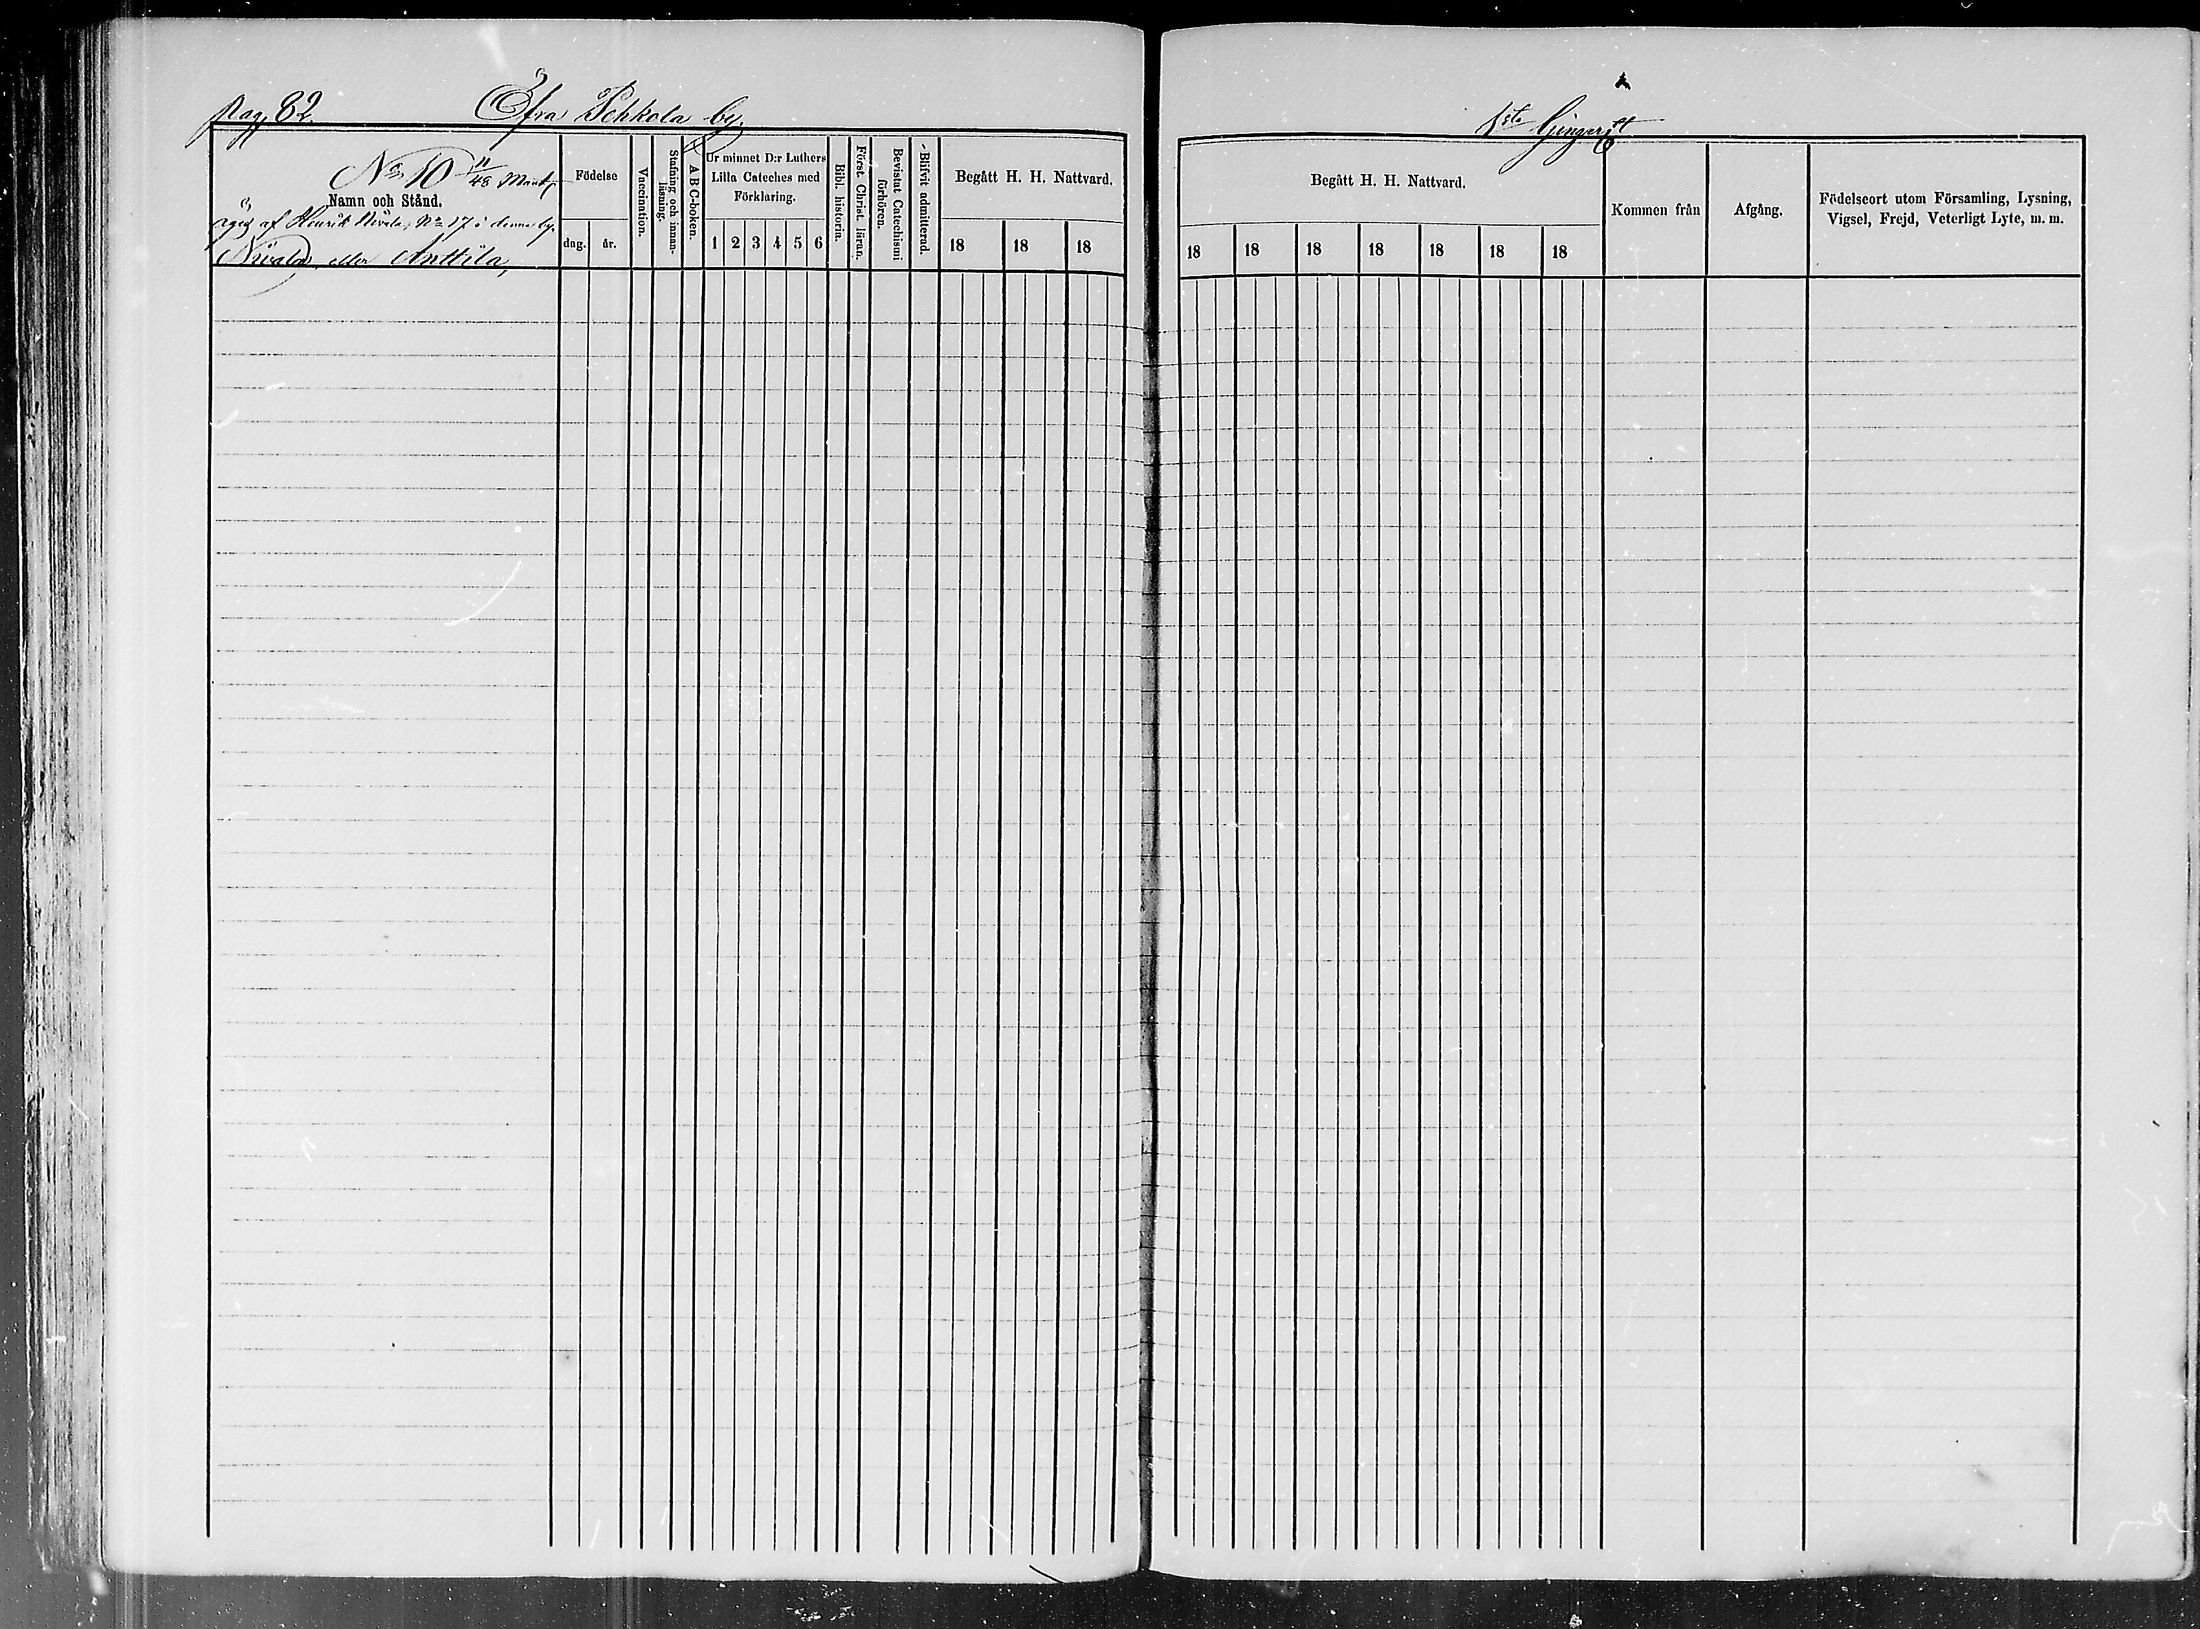 Pag. 82.
Öfra Pehkola by.
N:o 10 11/48 Mant.
Namn och Stånd.
äges af Henrik Nivala, N:o 17 i denna by.
Nivala, eller Anttila,
Födelse
dag.
år.
Vaccination.
Stafning och innan-
läsning.
A B C-boken.
Ur minnet D:r Luthers
Lilla Cateches med
Förklaring.
1 2 3 4 5 6
Bibl. historia.
Först. Christ. läran.
Bevistat Catechismi
förhören.
Blifvit admitterad.
Begått H. H. Nattvard.
18 18 18
1sta
Begått H. H. Nattvard.
18 18 18 18 18 18 18
Kommen från
Afgång.
Födelseort utom Församling, Lysning,
Vigsel, Frejd, Veterligt Lyte, m. m.